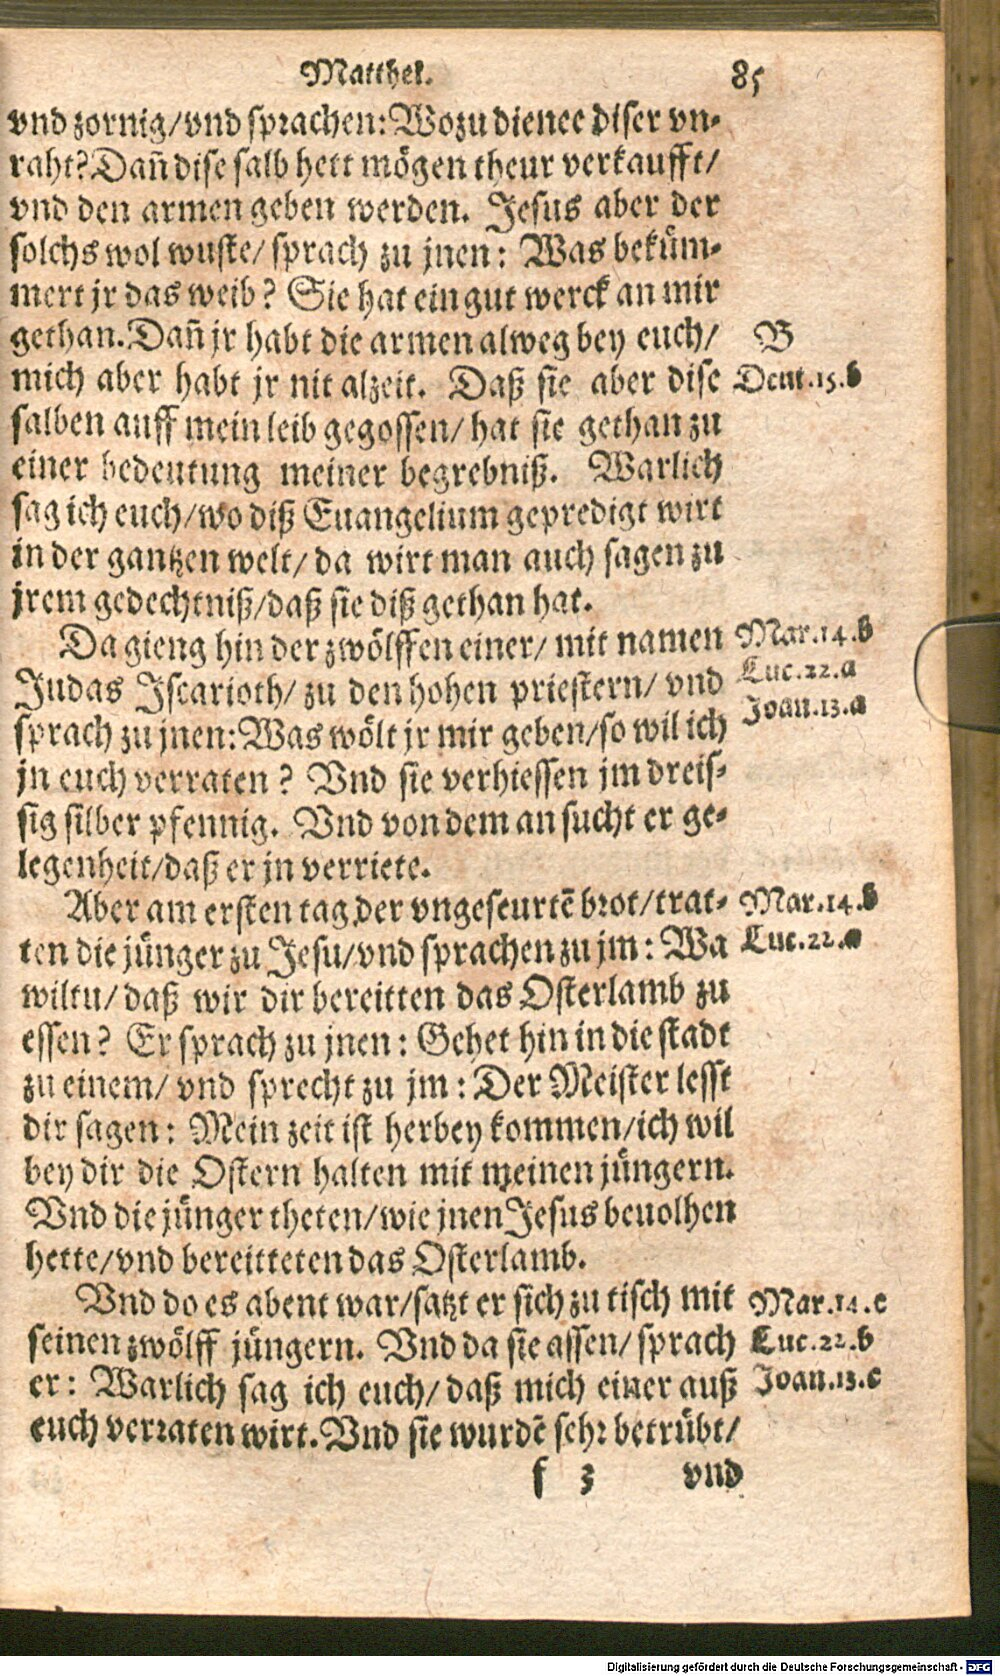 Matthei. 85
vnd zornig/vnd sprachen: Wozu dienet diser vn-
raht? Dañ dise salb hett mögen theur verkaufft/
vnd den armen geben werden. Jesus aber der
solchs wol wuste/ sprach zu jnen: Was beküm-
mert jr das weib? Sie hat ein gut werck an mir
gethan. Dañ jr habt die armen alweg bey euch/
B
mich aber habt jr nit alzeit. Daß sie aber dise
Deut.15.b
salben auff mein leib gegossen/ hat sie gethan zu
einer bedeutung meiner begrebniß. Warlich
sag ich euch/wo diß Euangelium gepredigt wirt
in der gantzen welt/ da wirt man auch sagen zu
jrem gedechtniß/daß sie diß gethan hat.
Da gieng hin der zwölffen einer/ mit namen
Mar.14.b
Judas Iscarioth/ zu den hohen priestern/ vnd
Luc.22.a
sprach zu jnen: Was wölt jr mir geben/so wil ich
Joan.13.a
jn euch verraten? Vnd sie verhiessen jm dreis-
sig silber pfennig. Vnd von dem an sucht er ge-
legenheit/daß er jn verriete.
Aber am ersten tag der vngeseurtē brot/trat-
Mar.14.b
ten die jünger zu Jesu/vnd sprachen zu jm: Wa
Luc.22.a
wiltu/ daß wir dir bereitten das Osterlamb zu
essen? Er sprach zu jnen: Gehet hin in die stadt
zu einem/ vnd sprecht zu jm: Der Meister lesst
dir sagen: Mein zeit ist herbey kommen/ich wil
bey dir die Ostern halten mit meinen jüngern.
Vnd die jünger theten/wie jnen Jesus beuolhen
hette/vnd bereitteten das Osterlamb.
Vnd do es abent war/satzt er sich zu tisch mit
Mar.14.c
seinen zwölff jüngern. Vnd da sie assen/ sprach
Luc.22.b
er: Warlich sag ich euch/ daß mich einer auß
Joan.13.c
euch verraten wirt. Vnd sie wurdē sehr betrübt/
f 3 vnd
Digitalisierung gefördert durch die Deutsche Forschungsgemeinschaft - DFG